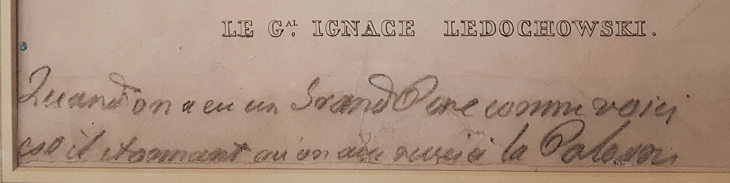 LE G.AL IGNACE LEDOCHOWSKI.
Quand on a eu un Grand Pere comme voici
est il étonnant qu'on aie la